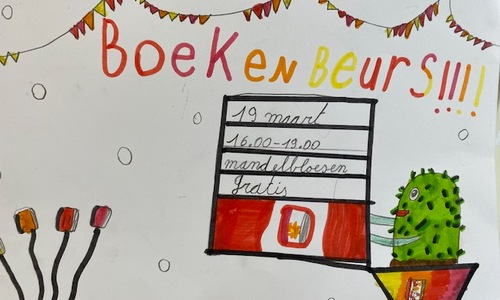 Boeken beurs!!!!
19 maart
16.00-19.00
mandelbloesen
gratis